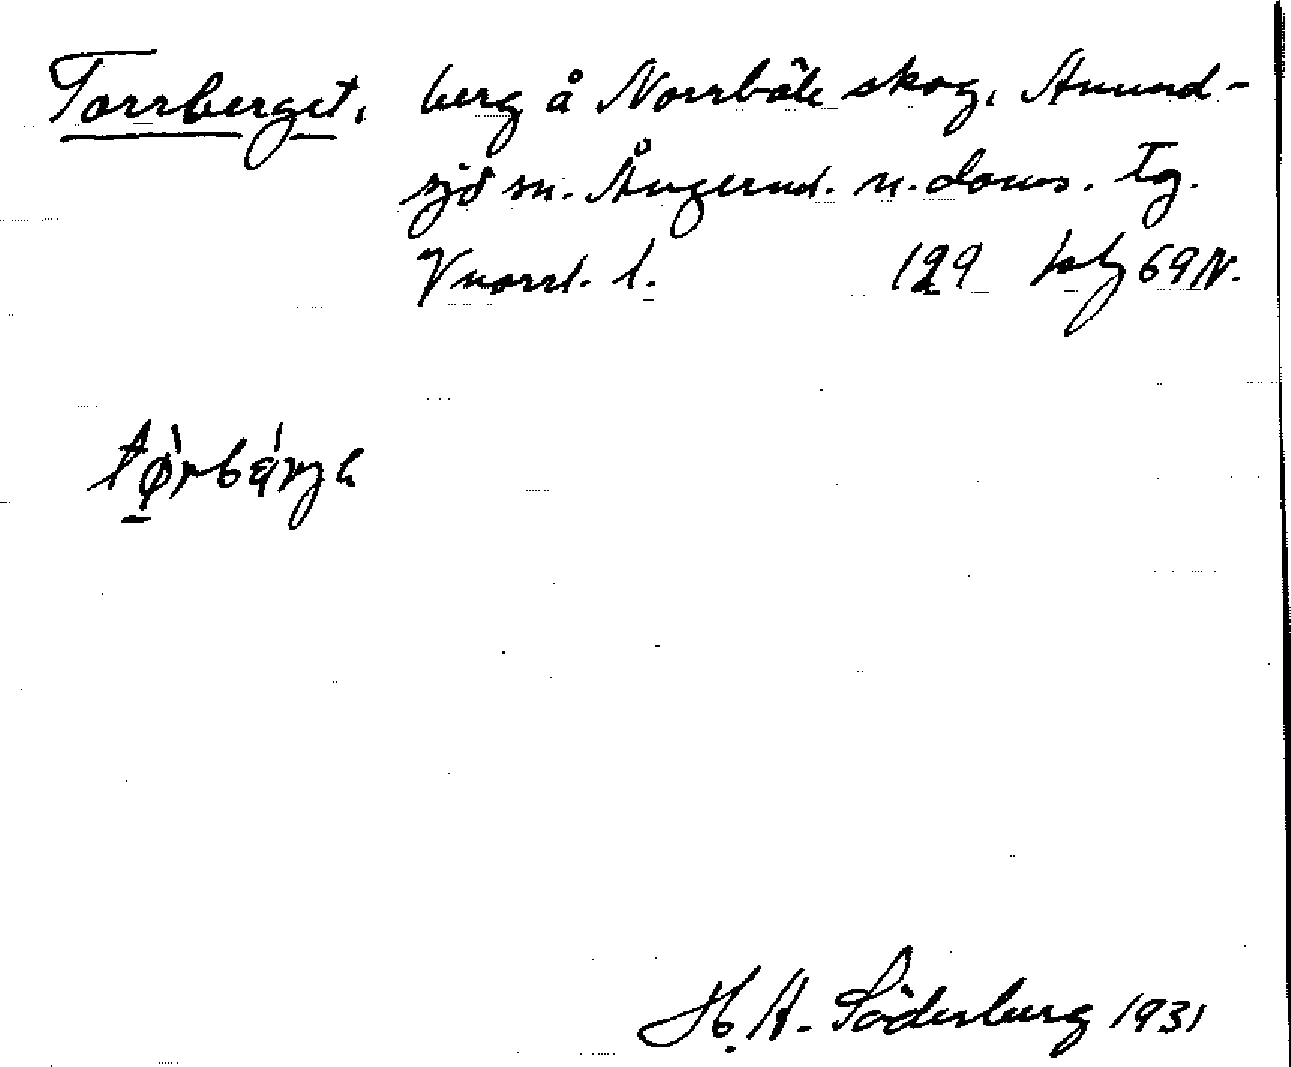 Torrberget, berg å Norrböle skog, Anund-
sjö sn. Ångerml. n. doms. tg.
Vnorrl. l. 129 69 N.
H. A. Söderberg 1931